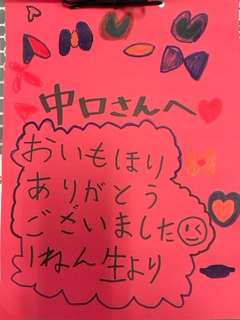 中口さんへ
おいもほり
ありがとう
ございました
1ねん生より